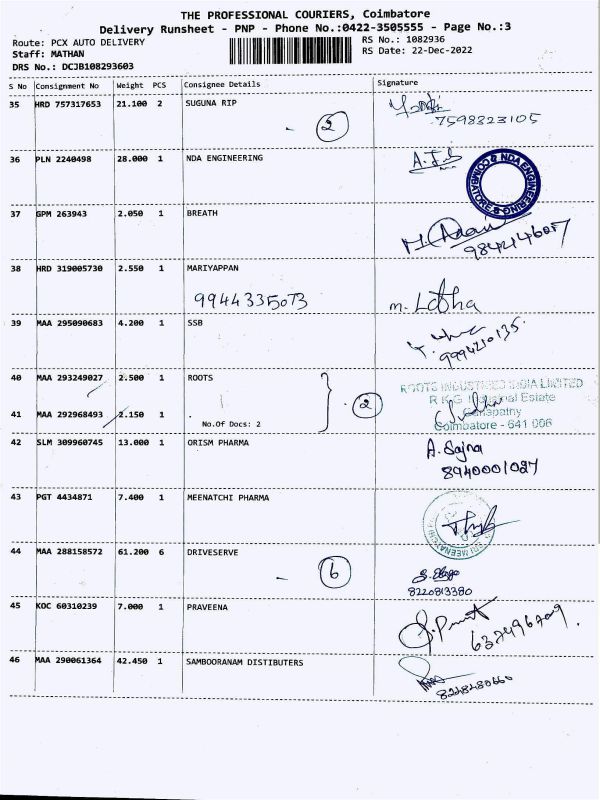 THE PROFESSIONAL COURIERS, Coimbatore
Delivery Runsheet - PNP - Phone No.:0422-3505555 - Page No.:3
Route: PCX AUTO DELIVERY
RS No.: 1082936
Staff: MATHAN
RS Date: 22-Dec-2022
DRS No.: DCJB108293603
S No Consignment No Weight PCS Consignee Details Signature
35 HRD 757317653 21.100 2 SUGUNA RIP
- 2 7598823105
36 PLN 2240498 28.000 1 NDA ENGINEERING
NDA ENGINEERING COIMBATORE
37 GPM 263943 2.050 1 BREATH
9842146057
38 HRD 319005730 2.550 1 MARIYAPPAN
9944335073 m. Latha
39 MAA 295090683 4.200 1 SSB
9994210135
40 MAA 293249027 2.500 1 ROOTS
ROOTS INDUSTRIES INDIA LIMITED
2 R K G Industrial Estate
41 MAA 292968493 2.150 1 Ganapathy
No.Of Docs: 2 Coimbatore - 641 006
42 SLM 309960745 13.000 1 ORISM PHARMA A. Sajna
8940001027
43 PGT 4434871 7.400 1 MEENATCHI PHARMA
SRI MEENATCHI
44 MAA 288158572 61.200 6 DRIVESERVE
- 6
8220813380
45 KOC 60310239 7.000 1 PRAVEENA
46 MAA 290061364 42.450 1 SAMBOORANAM DISTIBUTERS